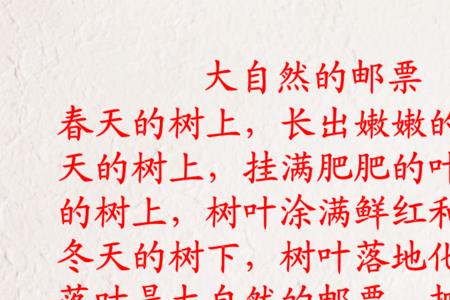 大自然的邮票
春天的树上，长出嫩嫩的
天的树上，挂满肥肥的叶
的树上，树叶涂满鲜红和
冬天的树下，树叶落地化
落叶是大自然的邮票，把